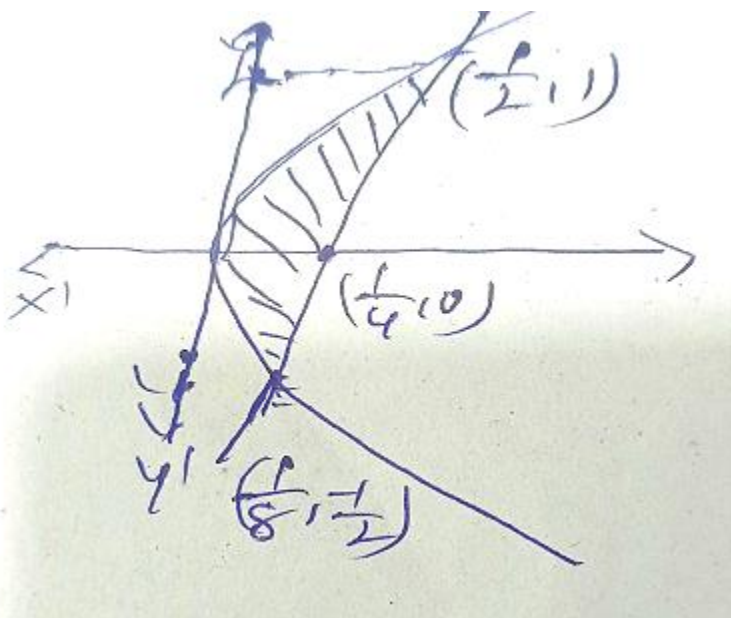 (1/2, 1)
(1/4, 0)
X'
Y'
(1/8, -1/2)